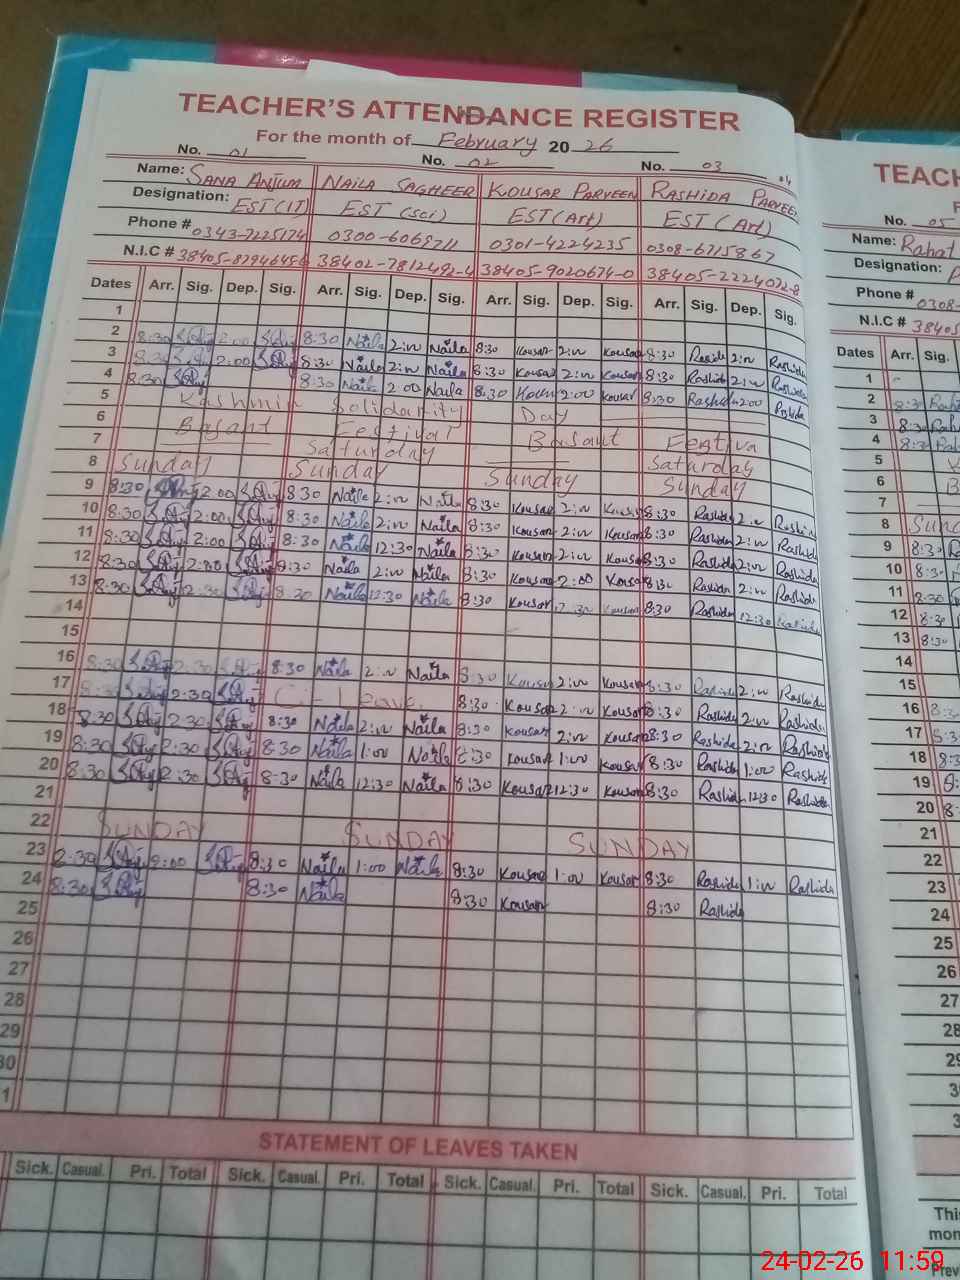 TEACHER'S ATTENDANCE REGISTER
For the month of February 20 26
No. 01 No. 02 No. 03 04
Name: SANA ANJUM NAILA SAGHEER KOUSAR PARVEEN RASHIDA PARVEEN
Designation: EST(IT) EST (Sci) EST (Art) EST (Art)
Phone # 0343-7225174 0301-4224235 0308-6715867
N.I.C # 38402-7812492-4 38405-9020674-0 38405-2224072-8
Dates Arr. Sig. Dep. Sig. Arr. Sig. Dep. Sig. Arr. Sig. Dep. Sig. Arr. Sig. Dep. Sig.
1
2 8:30 2:00 8:30 Naila 2:00 Naila 8:30 Kousar 2:00 Kousar 8:30 Rashida 2:00 Rashida
3 8:30 2:00 8:30 Naila 2:00 Naila 8:30 Kousar 2:00 Kousar 8:30 Rashida 2:00 Rashida
4 8:30 8:30 Naila 2:00 Naila 8:30 Kousar 2:00 Kousar 8:30 Rashida 2:00 Rashida
5 Kashmir Solidarity Day
6 Basant Festival Basant Festiva
7 Saturday Saturday
8 Sunday Sunday Sunday Sunday
9 8:30 2:00 8:30 Naila 2:00 Naila 8:30 Kousar 2:00 Kousar 8:30 Rashida 2:00 Rashida
10 8:30 2:00 8:30 Naila 2:00 Naila 8:30 Kousar 2:00 Kousar 8:30 Rashida 2:00 Rashida
11 8:30 2:00 8:30 Naila 12:30 Naila 8:30 Kousar 2:00 Kousar 8:30 Rashida 2:00 Rashida
12 8:30 2:00 8:30 Naila 2:00 Naila 8:30 Kousar 2:00 Kousar 8:30 Rashida 2:00 Rashida
13 8:30 2:30 8:30 Naila 12:30 Naila 8:30 Kousar 12:30 Kousar 8:30 Rashida 12:30 Rashida
14
15
16 8:30 2:30 8:30 Naila 2:00 Naila 8:30 Kousar 2:00 Kousar 8:30 Rashida 2:00 Rashida
17 8:30 2:30 Leave 8:30 Kousar 2:00 Kousar 8:30 Rashida 2:00 Rashida
18 8:30 2:30 8:30 Naila 2:00 Naila 8:30 Kousar 2:00 Kousar 8:30 Rashida 2:00 Rashida
19 8:30 2:30 8:30 Naila 1:00 Naila 8:30 Kousar 1:00 Kousar 8:30 Rashida 1:00 Rashida
20 8:30 2:30 8:30 Naila 12:30 Naila 8:30 Kousar 12:30 Kousar 8:30 Rashida 12:30 Rashida
21
22 SUNDAY SUNDAY SUNDAY
23 2:00 8:30 Naila 1:00 Naila 8:30 Kousar 1:00 Kousar 8:30 Rashida 1:00 Rashida
24 8:30 8:30 Naila 8:30 Kousar 8:30 Rashida
25
26
27
28
29
30
1
STATEMENT OF LEAVES TAKEN
Sick. Casual. Pri. Total Sick. Casual. Pri. Total Sick. Casual. Pri. Total Sick. Casual. Pri. Total
TEACH
No. 05
Name: Rahat
Designation:
Phone # 0308-
N.I.C # 38405
Dates Arr. Sig.
1
2 8:30
3 8:30
4 8:30
5
6
7
8 Sund
9 8:30
10 8:30
11 8:30
12 8:30
13 8:30
14
15
16
17
18
19
20
21
22
23
24
25
26
27
28
29
3
3
This
mon
Prev
24-02-26 11:59